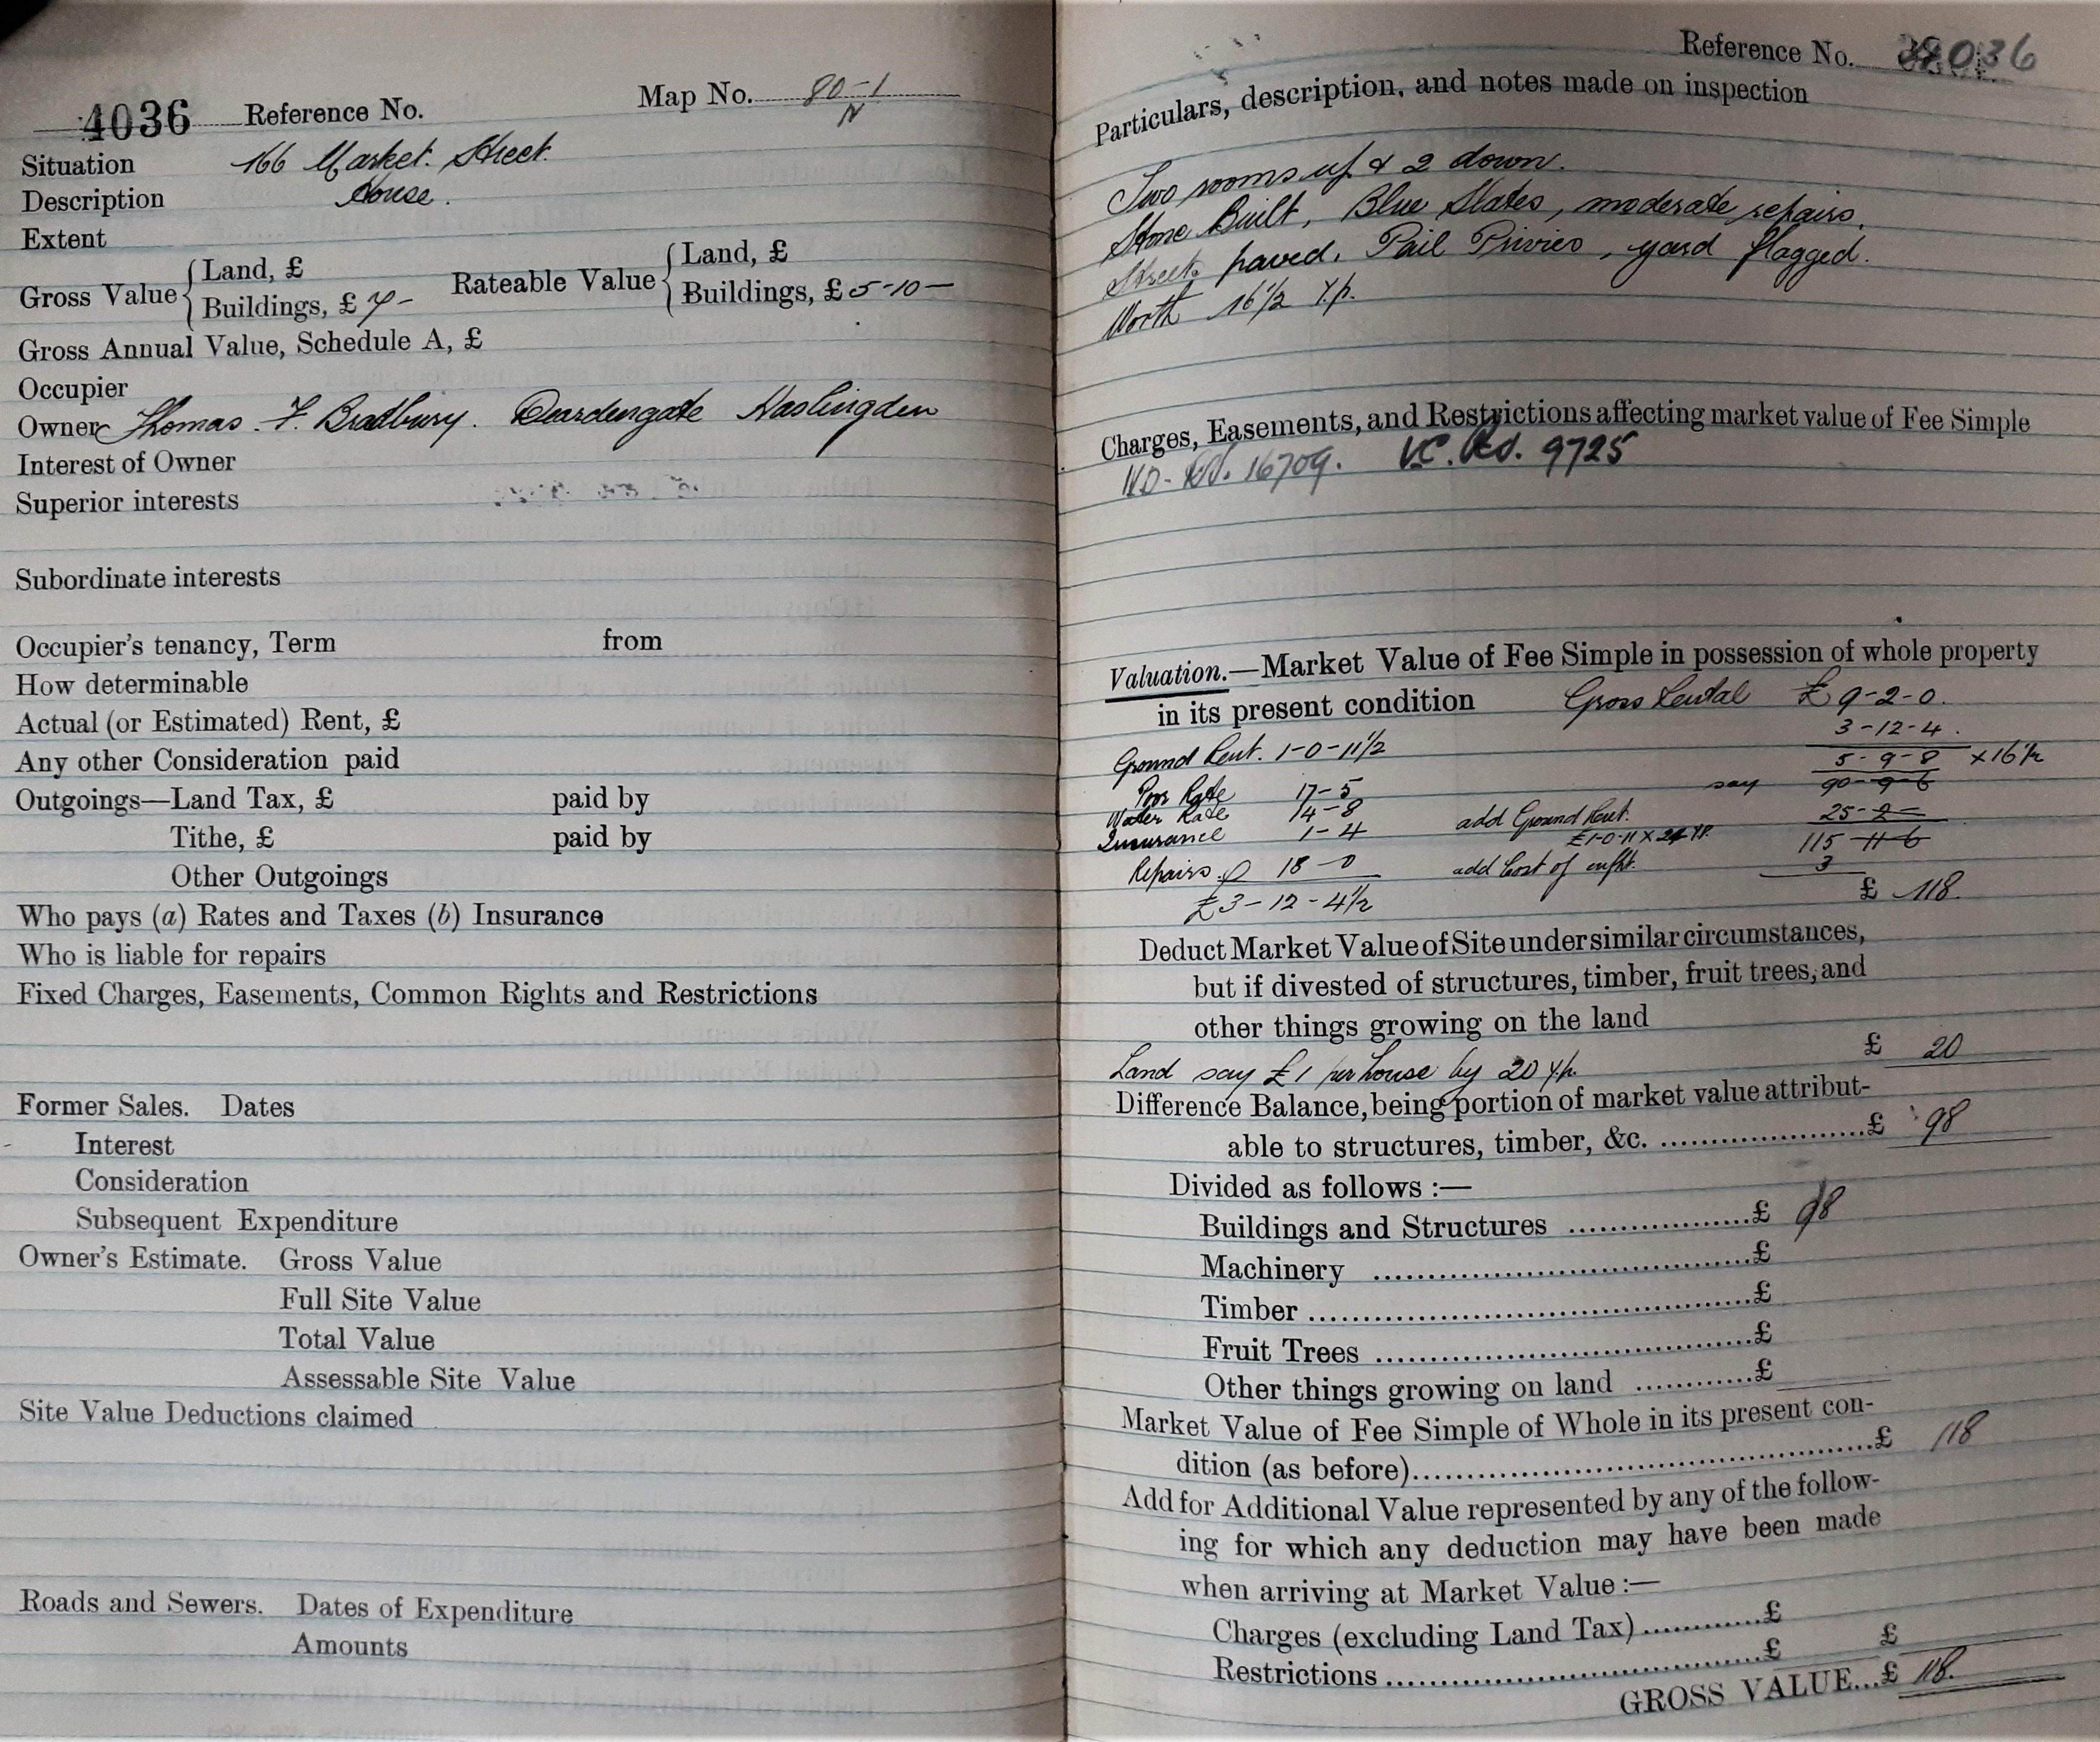 4036 Reference No. Map No. 80-1
N
Situation 166 Market. Street.
Description House.
Extent
Gross Value { Land, £
Buildings, £ 7-
Rateable Value { Land, £
Buildings, £ 5-10-
Gross Annual Value, Schedule A, £
Occupier
Owner Thomas. F. Bradbury. Deardengate Haslingden
Interest of Owner
Superior interests
Subordinate interests
Occupier's tenancy, Term from
How determinable
Actual (or Estimated) Rent, £
Any other Consideration paid
Outgoings—Land Tax, £ paid by
Tithe, £ paid by
Other Outgoings
Who pays (a) Rates and Taxes (b) Insurance
Who is liable for repairs
Fixed Charges, Easements, Common Rights and Restrictions
Former Sales. Dates
Interest
Consideration
Subsequent Expenditure
Owner's Estimate. Gross Value
Full Site Value
Total Value
Assessable Site Value
Site Value Deductions claimed
Roads and Sewers. Dates of Expenditure
Amounts
Reference No. 036
Particulars, description, and notes made on inspection
Two rooms up & 2 down.
Stone Built, Blue Slates, moderate repairs.
Street paved. Pail Privies, yard flagged.
Worth 16½ Y.p.
Charges, Easements, and Restrictions affecting market value of Fee Simple
16709. Rd. 9725
Valuation.—Market Value of Fee Simple in possession of whole property
in its present condition Gross Rental £9-2-0.
3-12-4.
Ground Rent. 1-0-11½ 5-9-8 x16½
Poor Rate 17-5 say 90-9-6
Water Rate 14-8 add Ground Rent. 25-2-
Insurance 1-4 £1-0-11 x 24 YP. 115-11-6
Repairs 18-0 add Cost of enfrt. 3
£3-12-4½ £ 118.
Deduct Market Value of Site under similar circumstances,
but if divested of structures, timber, fruit trees, and
other things growing on the land
Land say £1 per house by 20 Y.p. £ 20
Difference Balance, being portion of market value attribut-
able to structures, timber, &c. ....................£ 98
Divided as follows :—
Buildings and Structures ..................£ 98
Machinery ....................................£
Timber ..........................................£
Fruit Trees ...................................£
Other things growing on land ............£
Market Value of Fee Simple of Whole in its present con-
dition (as before)............................................£ 118
Add for Additional Value represented by any of the follow-
ing for which any deduction may have been made
when arriving at Market Value :—
Charges (excluding Land Tax)............£
Restrictions....................................£ £
GROSS VALUE...£ 118.